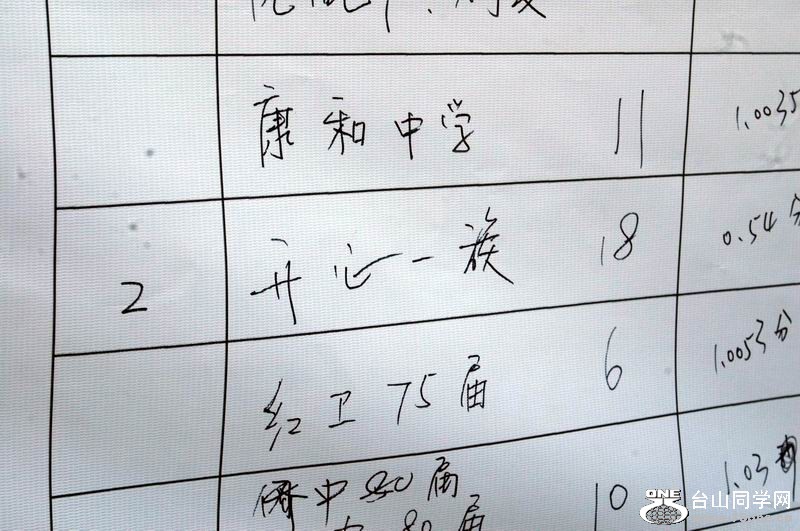 康和中学 11 1.0035
2 开心一族 18 0.54分
红卫75届 6 1.0053分
侨中80届 10 1.03
80届
ONE 台山同学网